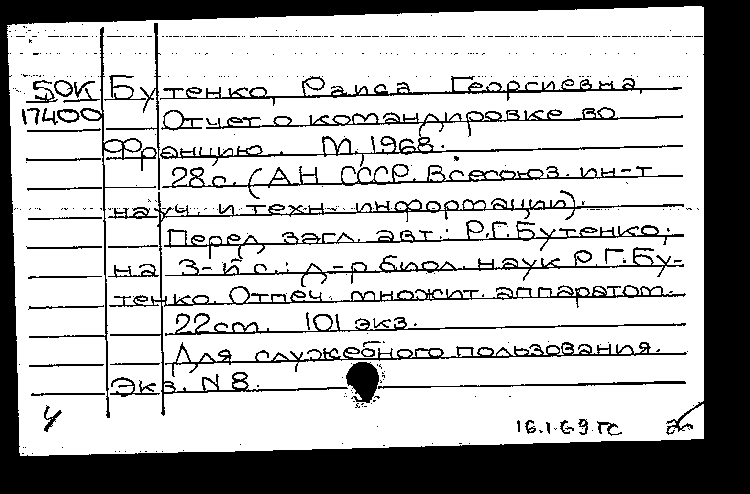 50К Бутенко, Раиса Георгиевна,
17400 Отчет о командировке во
Францию. М., 1968.
28 с. (АН СССР. Всесоюз. ин-т
науч. и техн. информации).
Перед загл. авт.: Р.Г.Бутенко;
на 3-й с.: д-р биол. наук Р.Г.Бу-
тенко. Отпеч. множит. аппаратом.
22 см. 101 экз.
Для служебного пользования.
Экз. N 8.
16.1.69 гс